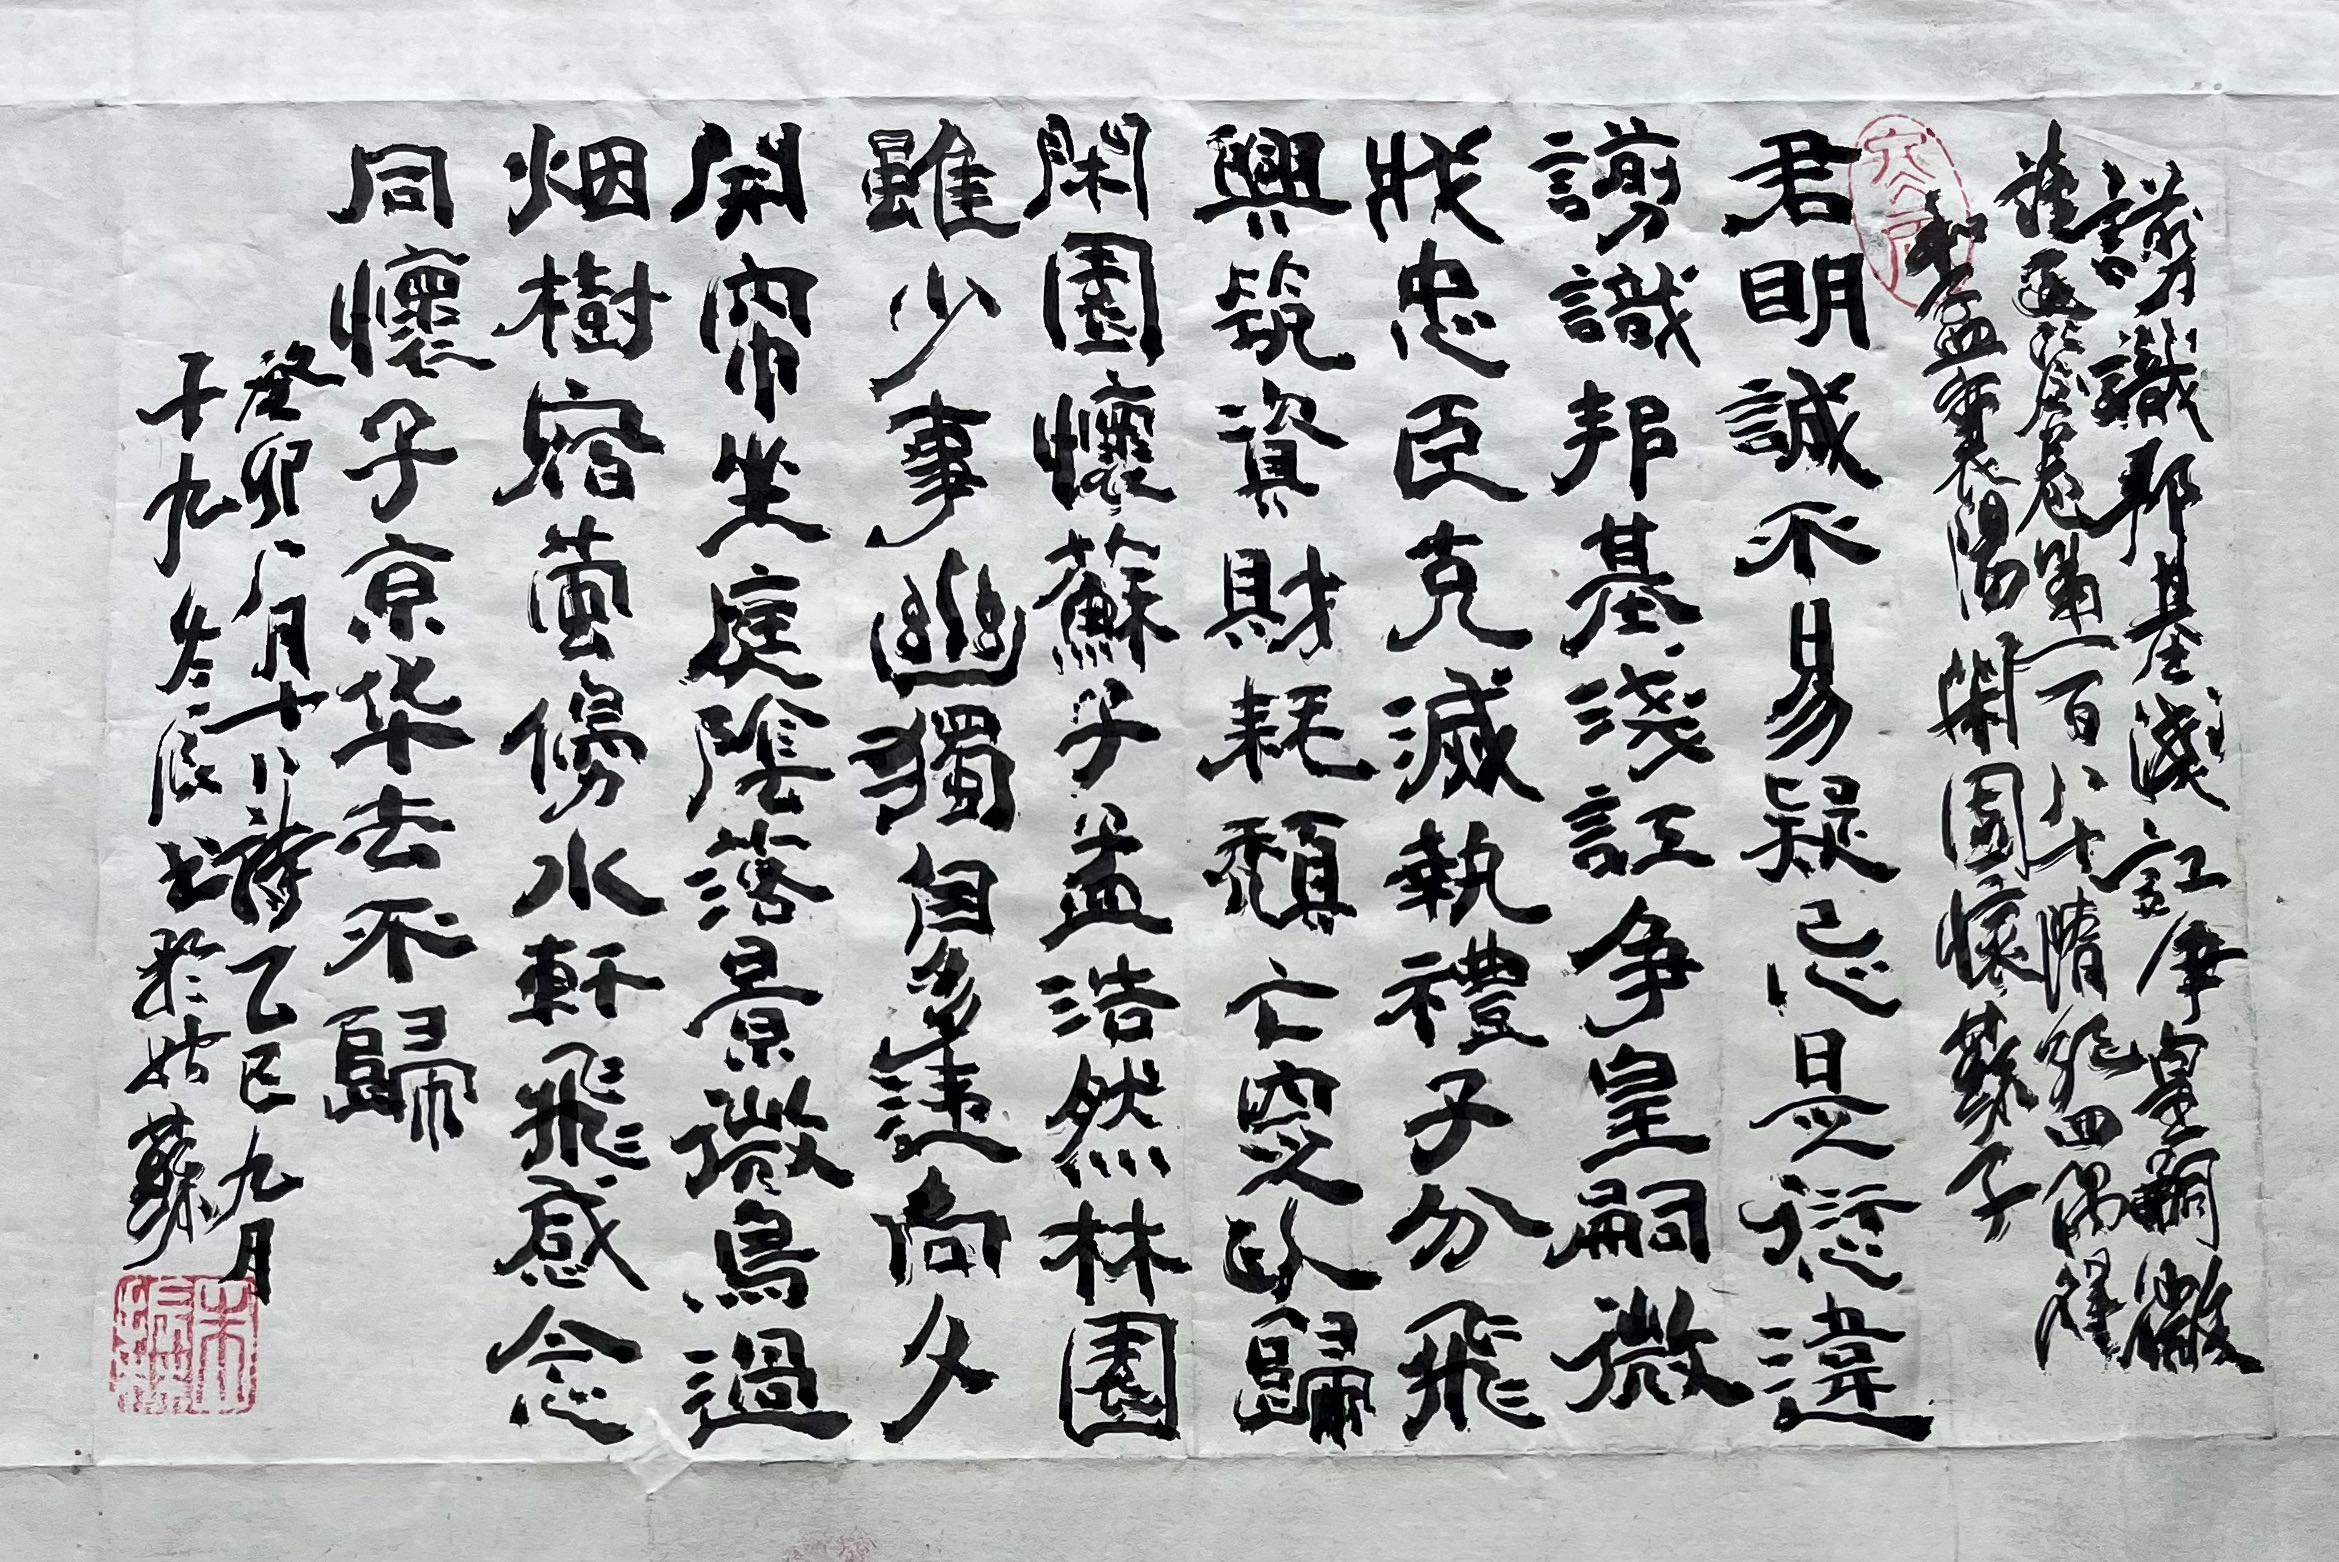 謭識邦基淺訌爭皇嗣微
讀通鑑卷第一百八十隋紀四偶得
和孟襄陽閑園懷蘇子
君明誠不易疑忌是愆違
謭識邦基淺訌争皇嗣微
戕忠臣克滅執禮子分飛
興筑資財耗頽亡突臥歸
閑園懷蘇子孟浩然林園
雖少事幽獨自多違向夕
開帘坐庭陰落景微鳥過
烟樹宿螢傍水軒飛感念
同懷子京华去不歸
癸卯八月十八詩乙巳九月
十九冬辰书於姑蘇